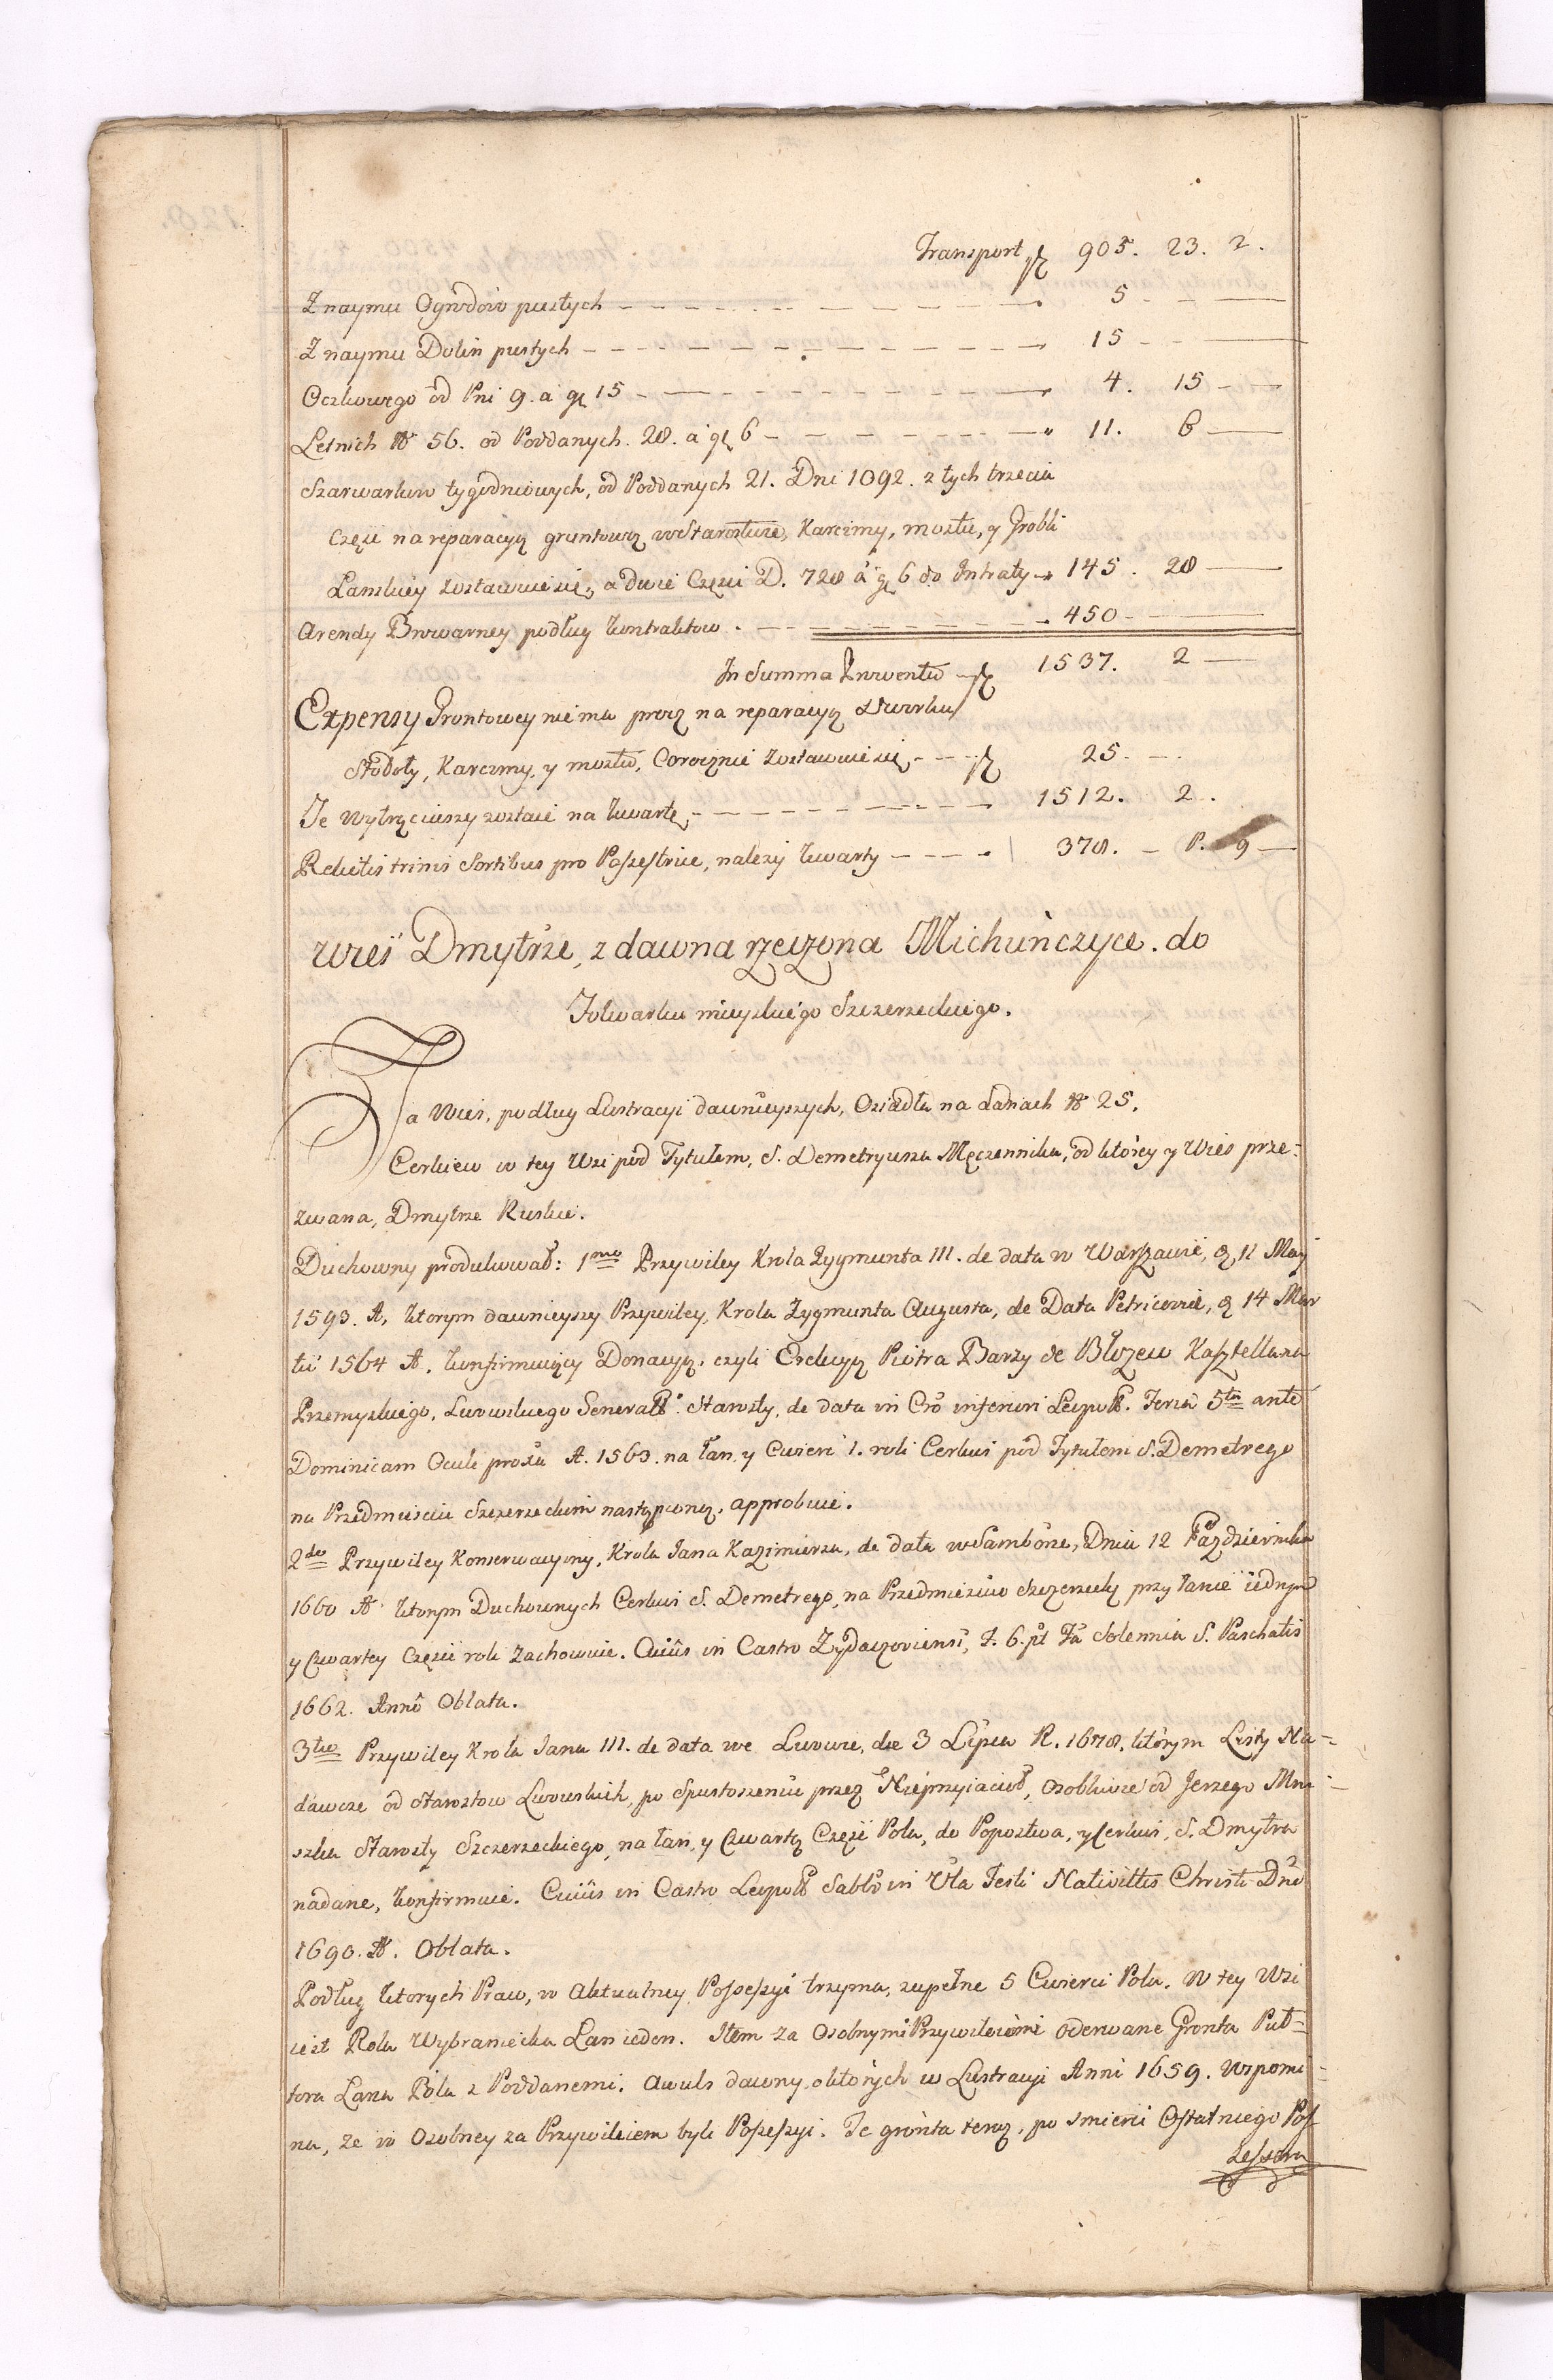 Transport zł 905. 23. 2.
Z naymu Ogrodow pustych 5
Z naymu Dolin pustych 15
Oczkowego od Pni 9. a gr 15 4. 15
Leśnich No 56. od Poddanych 28. a gr 6 11. 6
Szarwarkow tygodniowych, od Poddanych 21. Dni 1092. z tych trzecia
Część na reparacyą gruntową w Starostwie, Karczmy, mostu, y Grobli
Lanskiey zostawuie się, a dwie Części D. 728 á gr 6 do Intraty 145. 28
Arendy Browarney podług kontraktow 450
In Summa Proventu zł 1537. 2
Expensy Grontowey niema procz na reparacyą Dworku
Stodoły, Karczmy, y mostu, Corocznie zostawuie się zł 25.
Te wytrąciwszy zostaie na kwartę 1512. 2.
Relictis trinis Sortibus pro Possessore, należy kwarty 378. P. 9
Wieś Dmytrze, z dawna rzeczona Michunczyce. do
Folwarku mieyskiego Szczerzeckiego.
Ta Wieś, podług Lustracyi dawnieyszych, Osiadła na Łanach No 25.
Cerkiew w tey Wsi pod Tytułem, S. Demetryusza Męczennika, od ktorey y Wieś prze=
zwana, Dmytrze Ruskie.
Duchowny produkował: 1mo Przywiley Krola Zygmunta III. de data w Warszawie, d. 11 Maj
1593. A, ktorym dawnieyszy Przywiley, Krola Zygmunta Augusta, de Data Petricoviae, d. 14 Mar
tii 1564 A. konfirmuiący Donacyą, czyli Erekcyą Piotra Barzy de Błozew Kasztellana
Przemyskiego, Lwowskiego Generała Starosty, de data in Cro inferiori Leopol. Feria 5ta ante
Dominicam Oculi proxa A. 1563. na łan y Cwierć 1. roli Cerkwi pod Tytułem S. Demetrego
na Przedmieściu Szczerzeckim nastąpioną, approbuie.
2do Przywiley Konserwacyiny, Krola Jana Kazimierza, de data w Samborze, Dnia 12 Pazdziernika
1660 A ktorym Duchownych Cerkwi S. Demetrego, na Przedmieściu Szczerzecky przy łanie iednym
y Czwartey Części roli zachowuie. Cuius in Castro Zydaczoviensi, F. 6. pt Fa Solennia S. Paschatis
1662. Anno Oblata.
3tio Przywiley Krola Jana III. de data we Lwowie, die 3 Lipca R. 1678. ktorym Listy Na=
dawcze od Starostow Lwowskich, po Spustoszeniu przez Nieprzyiacioł, osobliwie od Jerzego Mni=
szka Starosty Szczerzeckiego, na łan, y Czwartą Część Pola, do Popostwa, y Cerkwi, S. Dmytra
nadane, konfirmuie. Cuius in Castro Leopol Sabbo in Vla Festi Nativittis Christi Dni
1690. A. Oblata.
Podług ktorych Praw, w Aktualney Possessyi trzyma, zupełne 5 Cwierci Pola. W tey Wsi
iest Rola Wybraniecka Łan ieden. Item za Osobnymi Przywileiami oderwane Gronta Puł=
tora Łana Pola z Poddanemi. Awuls dawny, o ktorych w Lustracyi Anni 1659. Wspomi=
na, że w Osobney za Przywileiem byli Possessyi. Te gronta teraz, po śmierci Ostatniego Pos
sessora